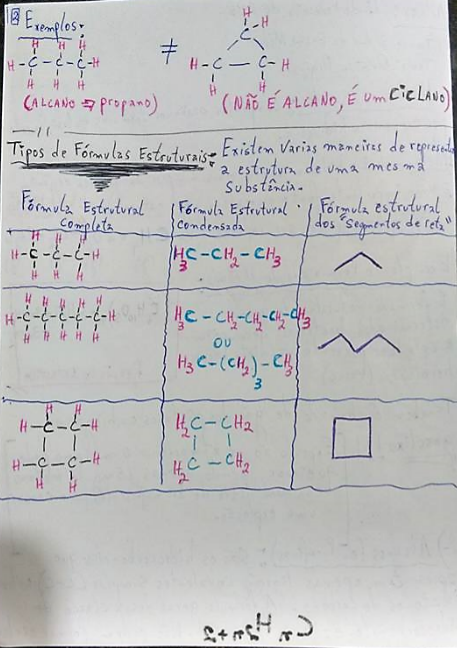 12 Exemplos.
H H H
H-C-C-C-H
H H H
≠
H H
C
H-C-C-H
H H
(ALCANO → propano)
(NÃO É ALCANO, É um CICLANO)
Tipos de Fórmulas Estruturais: Existem varias maneiras de represent
a estrutura de uma mesma
substância.
Fórmula Estrutural Completa
Fórmula Estrutural Condensada
Fórmula estrutural dos "Segmentos de reta"
H H H
H-C-C-C-H
H H H
H3C-CH2-CH3
H H H H H
H-C-C-C-C-C-H
H H H H H
H3C-CH2-CH2-CH2-CH3
OU
H3C-(CH2)3-CH3
H H
H-C-C-H
H-C-C-H
H H
H2C-CH2
H2C-CH2
CnH2n+2